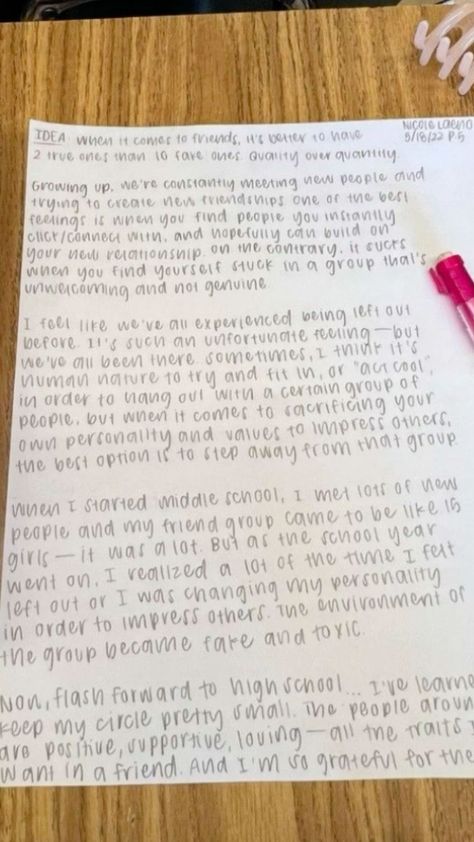 Nicole Laeno
5/18/22 P.5
IDEA: When it comes to friends, it's better to have
2 true ones than 10 fake ones. Quality over quantity.
Growing up, we're constantly meeting new people and
trying to create new friendships. One of the best
feelings is when you find people you instantly
click/connect with, and hopefully can build on
your new relationship. On the contrary, it sucks
when you find yourself stuck in a group that's
unwelcoming and not genuine
I feel like we've all experienced being left out
before. It's such an unfortunate feeling — but
we've all been there. Sometimes, I think it's
human nature to try and fit in, or "act cool",
in order to hang out with a certain group of
people, but when it comes to sacrificing your
own personality and values to impress others,
the best option is to step away from that group.
When I started middle school, I met lots of new
people and my friend group came to be like 15
girls — it was a lot. But as the school year
went on, I realized a lot of the time I felt
left out or I was changing my personality
in order to impress others. The environment of
the group became fake and toxic.
Now, flash forward to high school... I've learne
keep my circle pretty small. The people aroun
are positive, supportive, loving — all the traits I
want in a friend. And I'm so grateful for the